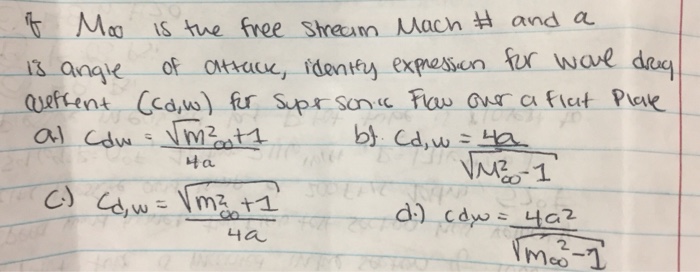 If M∞ is the free stream Mach # and a
is angle of attack, identify expression for wave drag
coeffcent (cd,w) for supersonic Flow over a flat Plate
a.) Cdw = √m²∞+1 / 4a b). Cd,w = 4a / √M²∞-1
C.) Cd,w = √m²∞+1 / 4a d.) cdw = 4a² / √m∞²-1